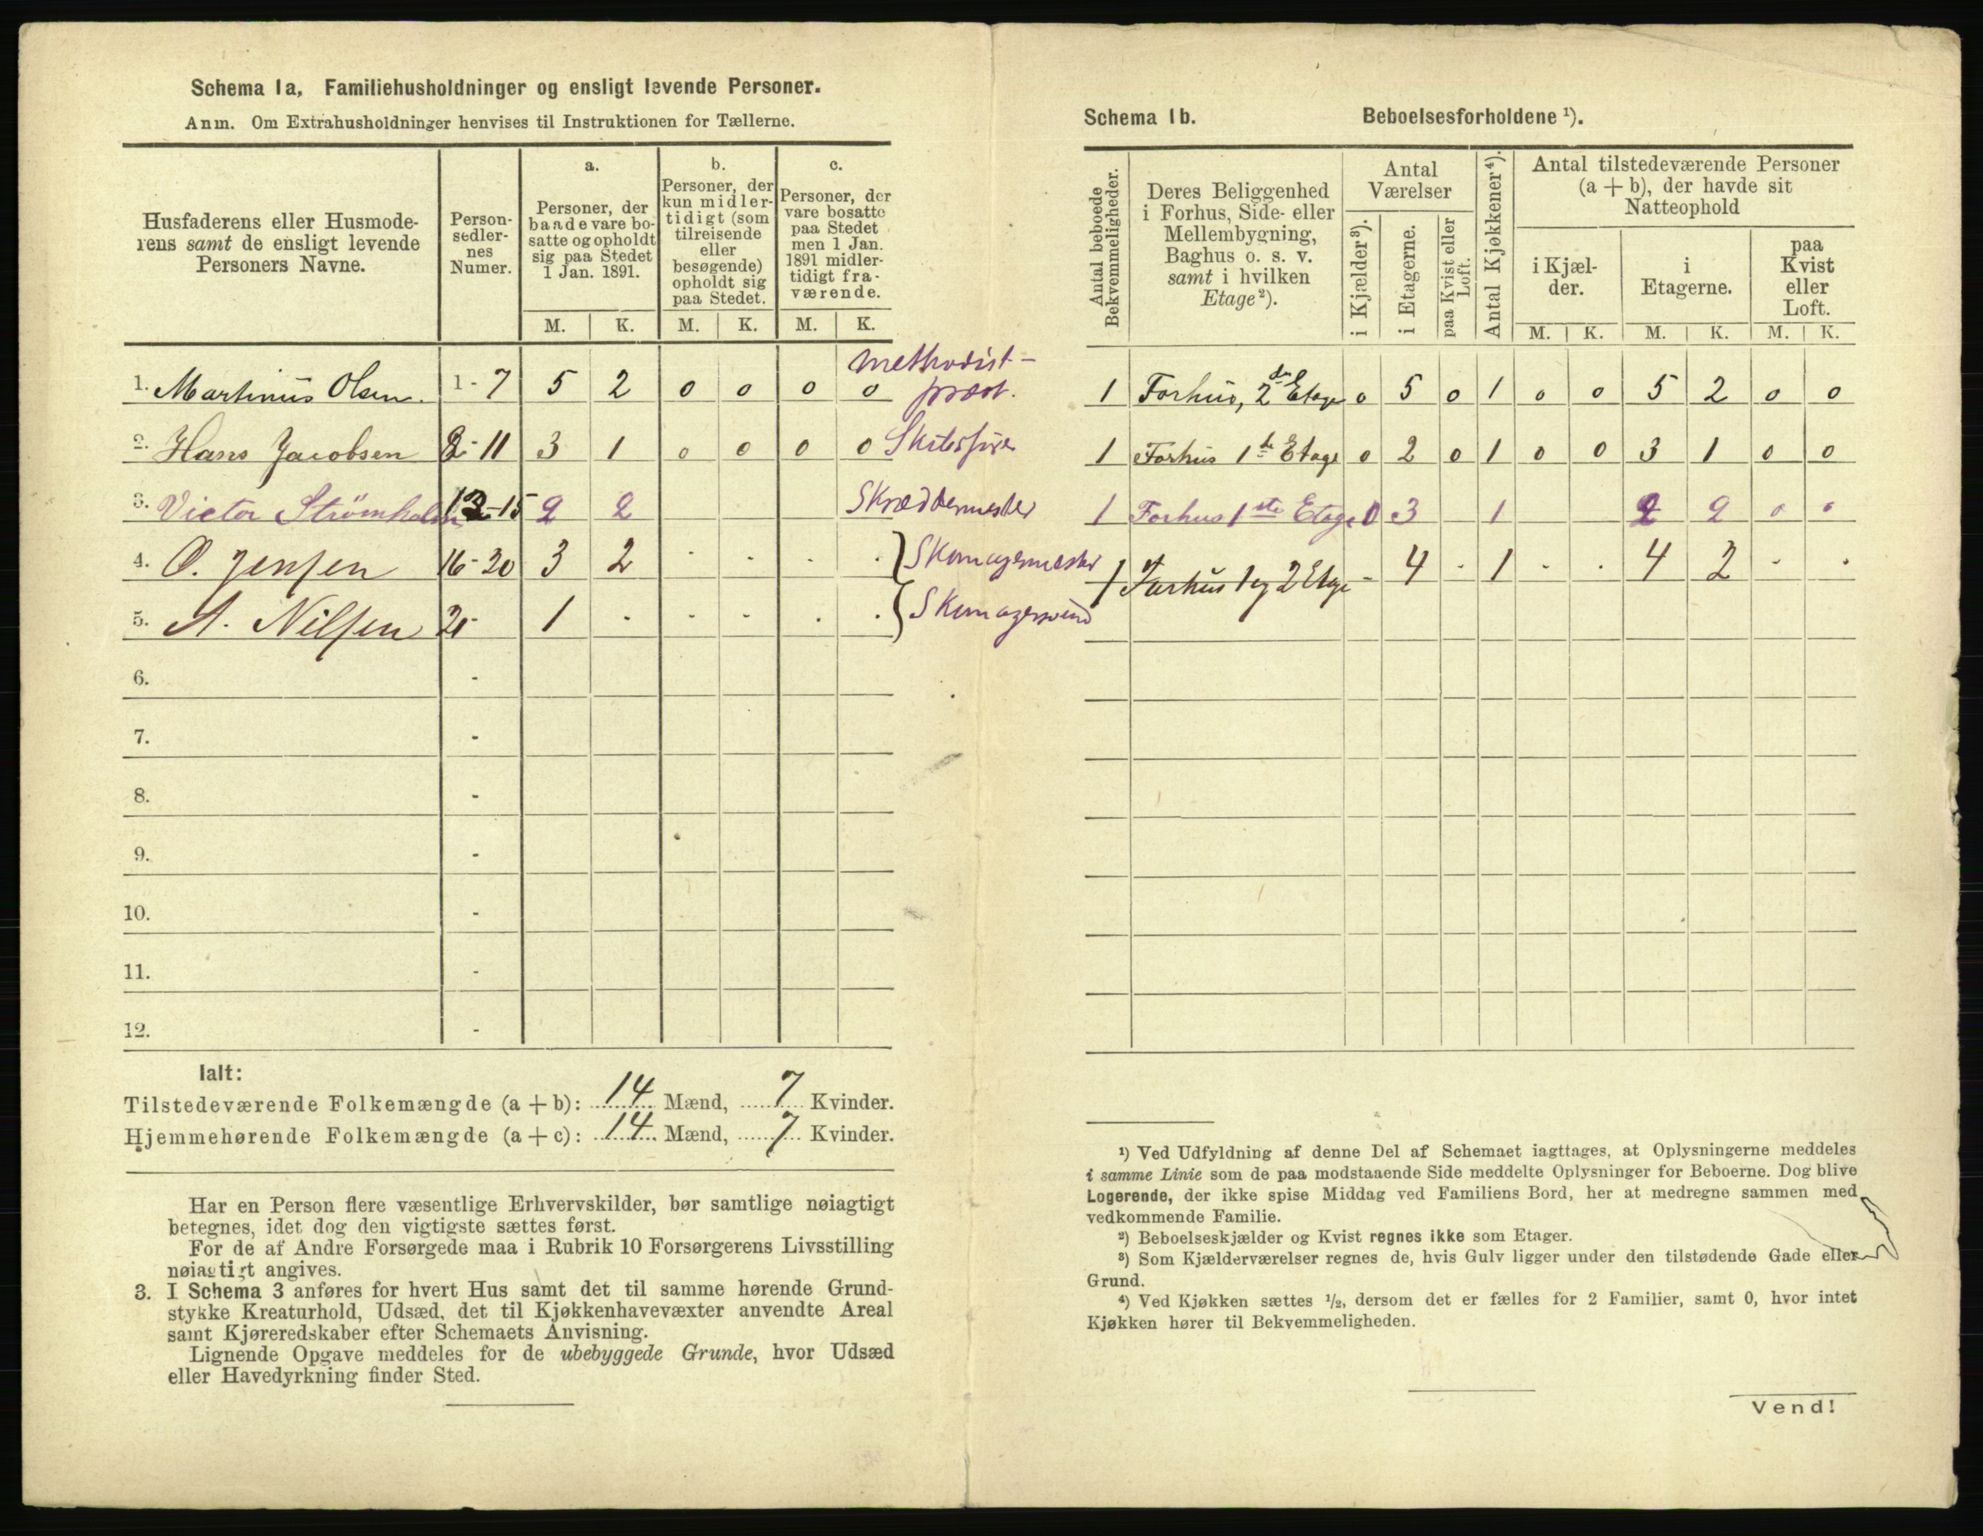 Schema 1a, Familiehusholdninger og ensligt levende Personer.
Anm. Om Extrahusholdninger henvises til Instruktionen for Tællerne.
Husfaderens eller Husmode-
rens samt de ensligt levende
Personers Navne.
Person-
sedler-
nes
Numer.
a.
Personer, der
baade vare bo-
satte og opholdt
sig paa Stedet
1 Jan. 1891.
b.
Personer, der
kun midler-
tidigt (som
tilreisende
eller
besøgende)
opholdt sig
paa Stedet.
c.
Personer, der
vare bosatte
paa Stedet
men 1 Jan.
1891 midler-
tidigt fra-
værende.
M. K. M. K. M. K.
1. Martinus Olsen. 1 - 7 5 2 0 0 0 0 methodist-
præst.
2. Hans Jacobsen 8 - 11 3 1 0 0 0 0
3. Victor Strømholm 12 - 15 2 2 Skræddermester
4. O. Jensen 16 - 20 3 2 · · · · } Skomagermester
5. A. Nilsen 21 - 1 · · · · · { Skomagersvend
6. -
7. -
8. -
9. -
10. -
11. -
12. -
Ialt:
Tilstedeværende Folkemængde (a + b): 14 Mænd, 7 Kvinder.
Hjemmehørende Folkemængde (a + c): 14 Mænd, 7 Kvinder.
Har en Person flere væsentlige Erhvervskilder, bør samtlige nøiagtigt
betegnes, idet dog den vigtigste sættes først.
For de af Andre Forsørgede maa i Rubrik 10 Forsørgerens Livsstilling
nøiagtigt angives.
3. I Schema 3 anføres for hvert Hus samt det til samme hørende Grund-
stykke Kreaturhold, Udsæd, det til Kjøkkenhavevæxter anvendte Areal
samt Kjøreredskaber efter Schemaets Anvisning.
Lignende Opgave meddeles for de ubebyggede Grunde, hvor Udsæd
eller Havedyrkning finder Sted.
Schema 1b. Beboelsesforholdene ¹).
Antal beboede
Bekvemmeligheder.
Deres Beliggenhed
i Forhus, Side- eller
Mellembygning,
Baghus o. s. v.
samt i hvilken
Etage ²).
Antal
Værelser
i Kjælder ³).
i Etagerne.
paa Kvist eller
Loft.
Antal Kjøkkener ⁴).
Antal tilstedeværende Personer
(a + b), der havde sit
Natteophold
i Kjæl-
der.
i
Etagerne.
paa
Kvist
eller
Loft.
M. K. M. K. M. K.
1 Forhus, 2den Etage 0 5 0 1 0 0 5 2 0 0
1 Forhus 1ste Etage 0 2 0 1 0 0 3 1 0 0
1 Forhus 1ste Etage 0 3 1 2 2 0 0
1 Forhus 1 og 2 Etage - 4 · 1 · · 4 2 · ·
¹) Ved Udfyldning af denne Del af Schemaet iagttages, at Oplysningerne meddeles
i samme Linie som de paa modstaaende Side meddelte Oplysninger for Beboerne. Dog blive
Logerende, der ikke spise Middag ved Familiens Bord, her at medregne sammen med
vedkommende Familie.
²) Beboelseskjælder og Kvist regnes ikke som Etager.
³) Som Kjælderværelser regnes de, hvis Gulv ligger under den tilstødende Gade eller
Grund.
⁴) Ved Kjøkken sættes ½, dersom det er fælles for 2 Familier, samt 0, hvor intet
Kjøkken hører til Bekvemmeligheden.
Vend!